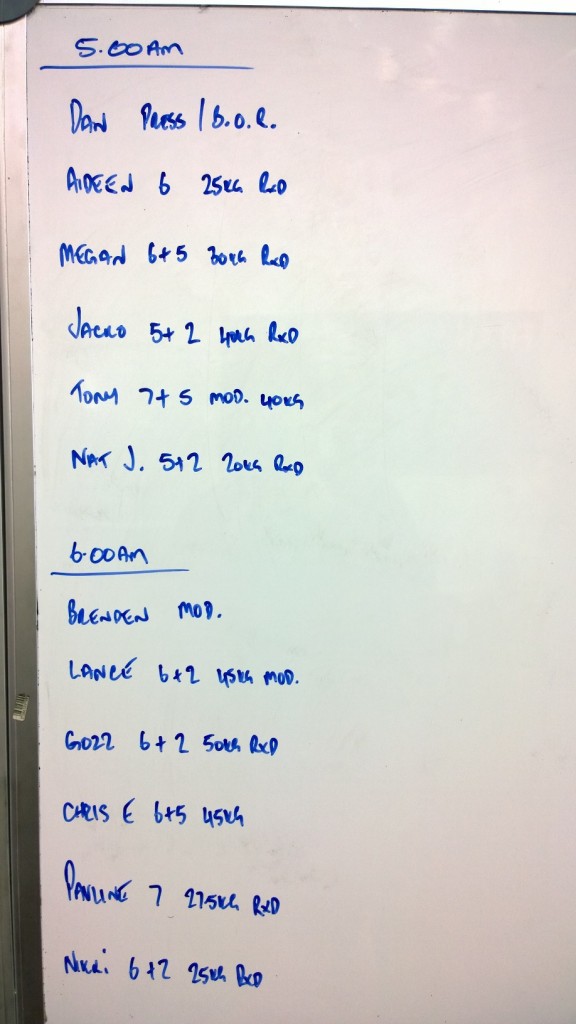 5.00AM
DAN PRESS / B.O.R.
AIDEEN 6 25KG RXD
MEGAN 6+5 30KG RXD
JACKO 5+2 40KG RXD
TONY 7+5 MOD. 40KG
NAT J. 5+2 20KG RXD
6.00AM
BRENDEN MOD.
LANCE 6+2 45KG MOD.
GOZZ 6+2 50KG RXD
CHRIS E 6+5 45KG
PAULINE 7 27.5KG RXD
NIKKI 6+2 25KG RXD